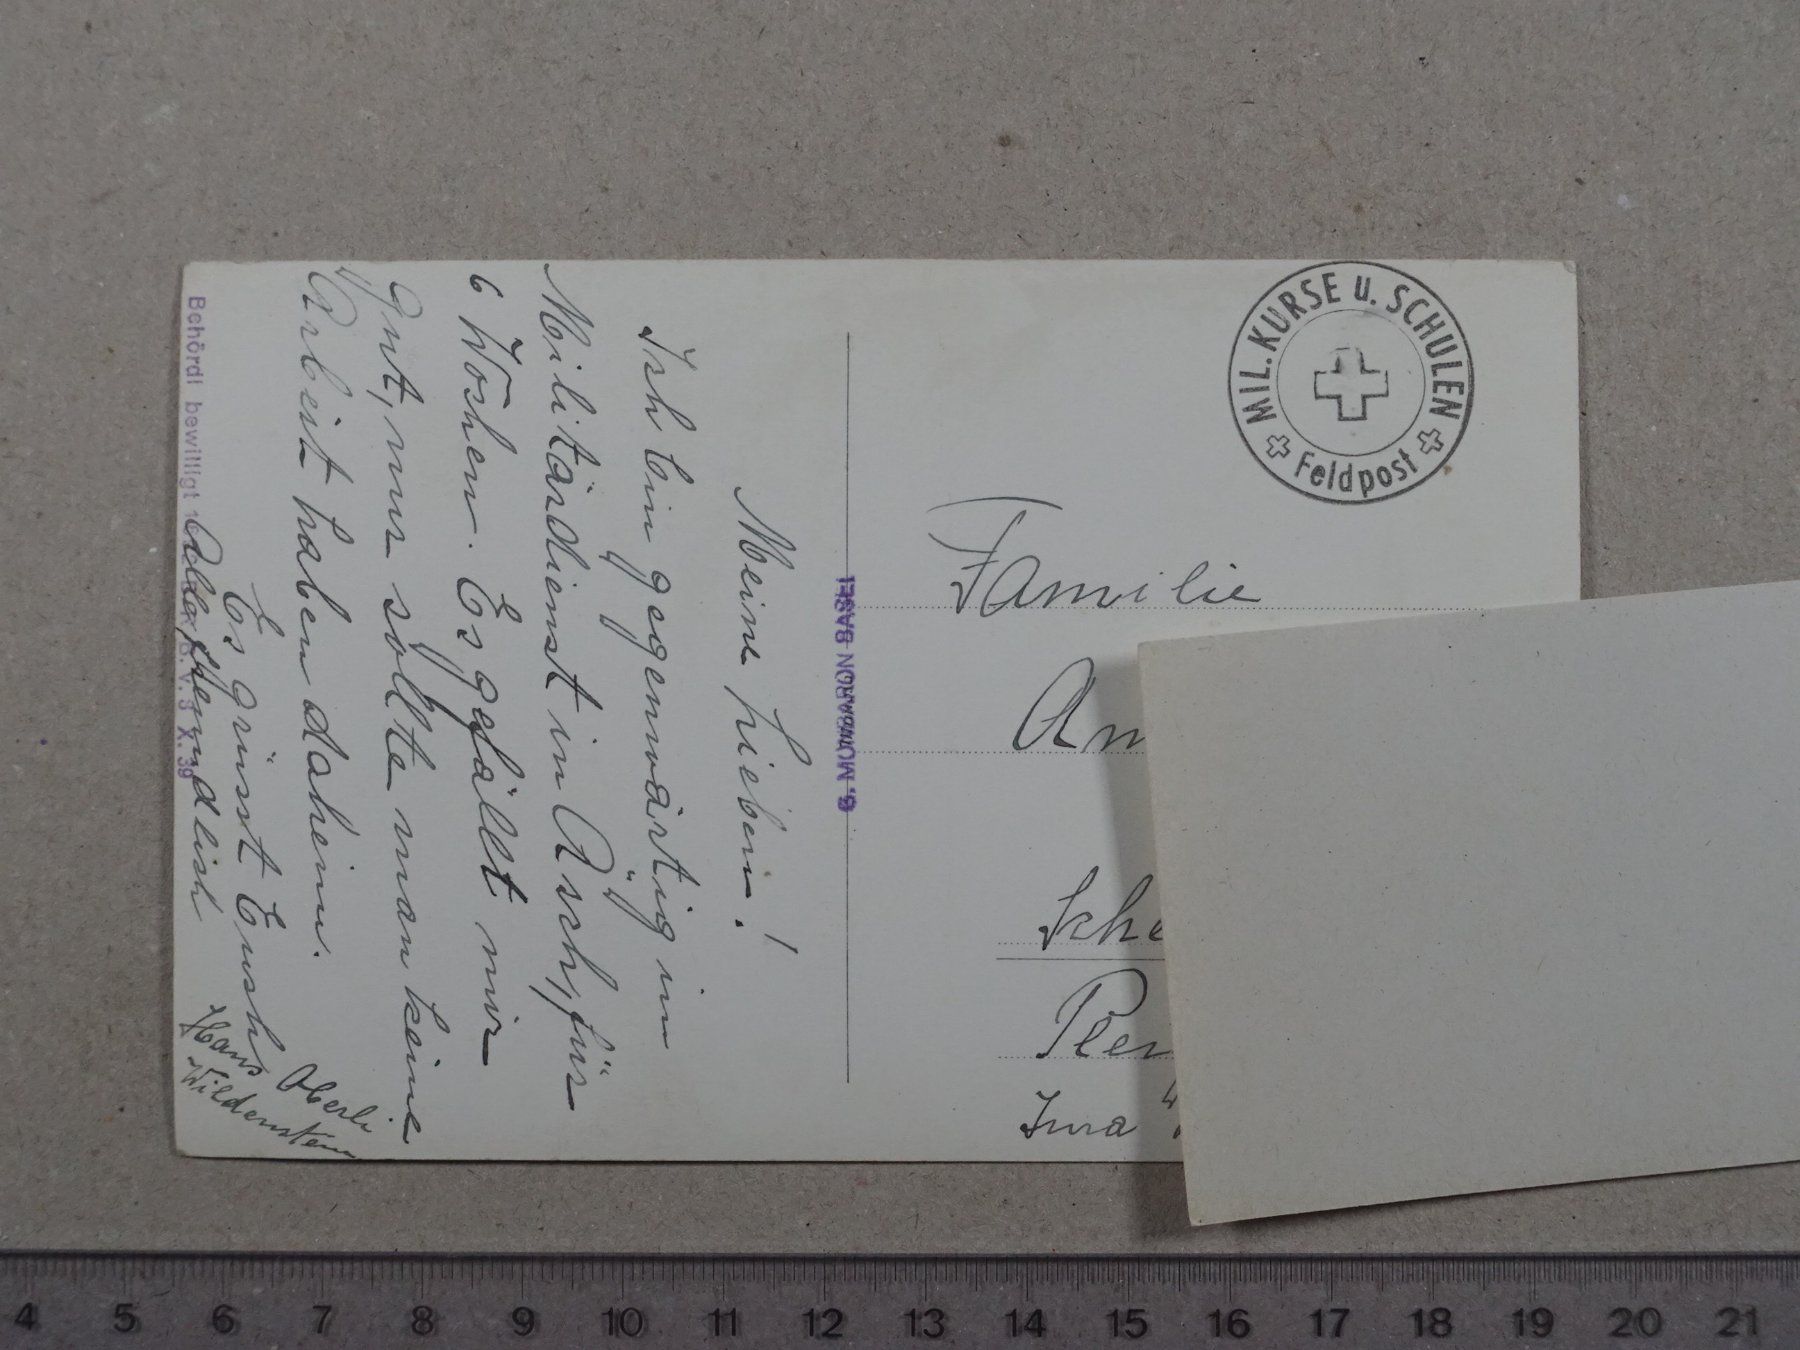 Meine Lieben!
Ich bin gegenwärtig im
Militärdienst in Äsch, für
6 Wochen. Es gefällt mir
gut, nur sollte man keine
Arbeit haben daheim.
Es grüsst Euch
freundlich
Hans Oberli
Wildenstein
Behördl bewilligt
3. X. 39
G. MOMBARON BASEL
MIL. KURSE u. SCHULEN
Feldpost
Familie
Am
Sche
Pler
Jura
4 5 6 7 8 9 10 11 12 13 14 15 16 17 18 19 20 21